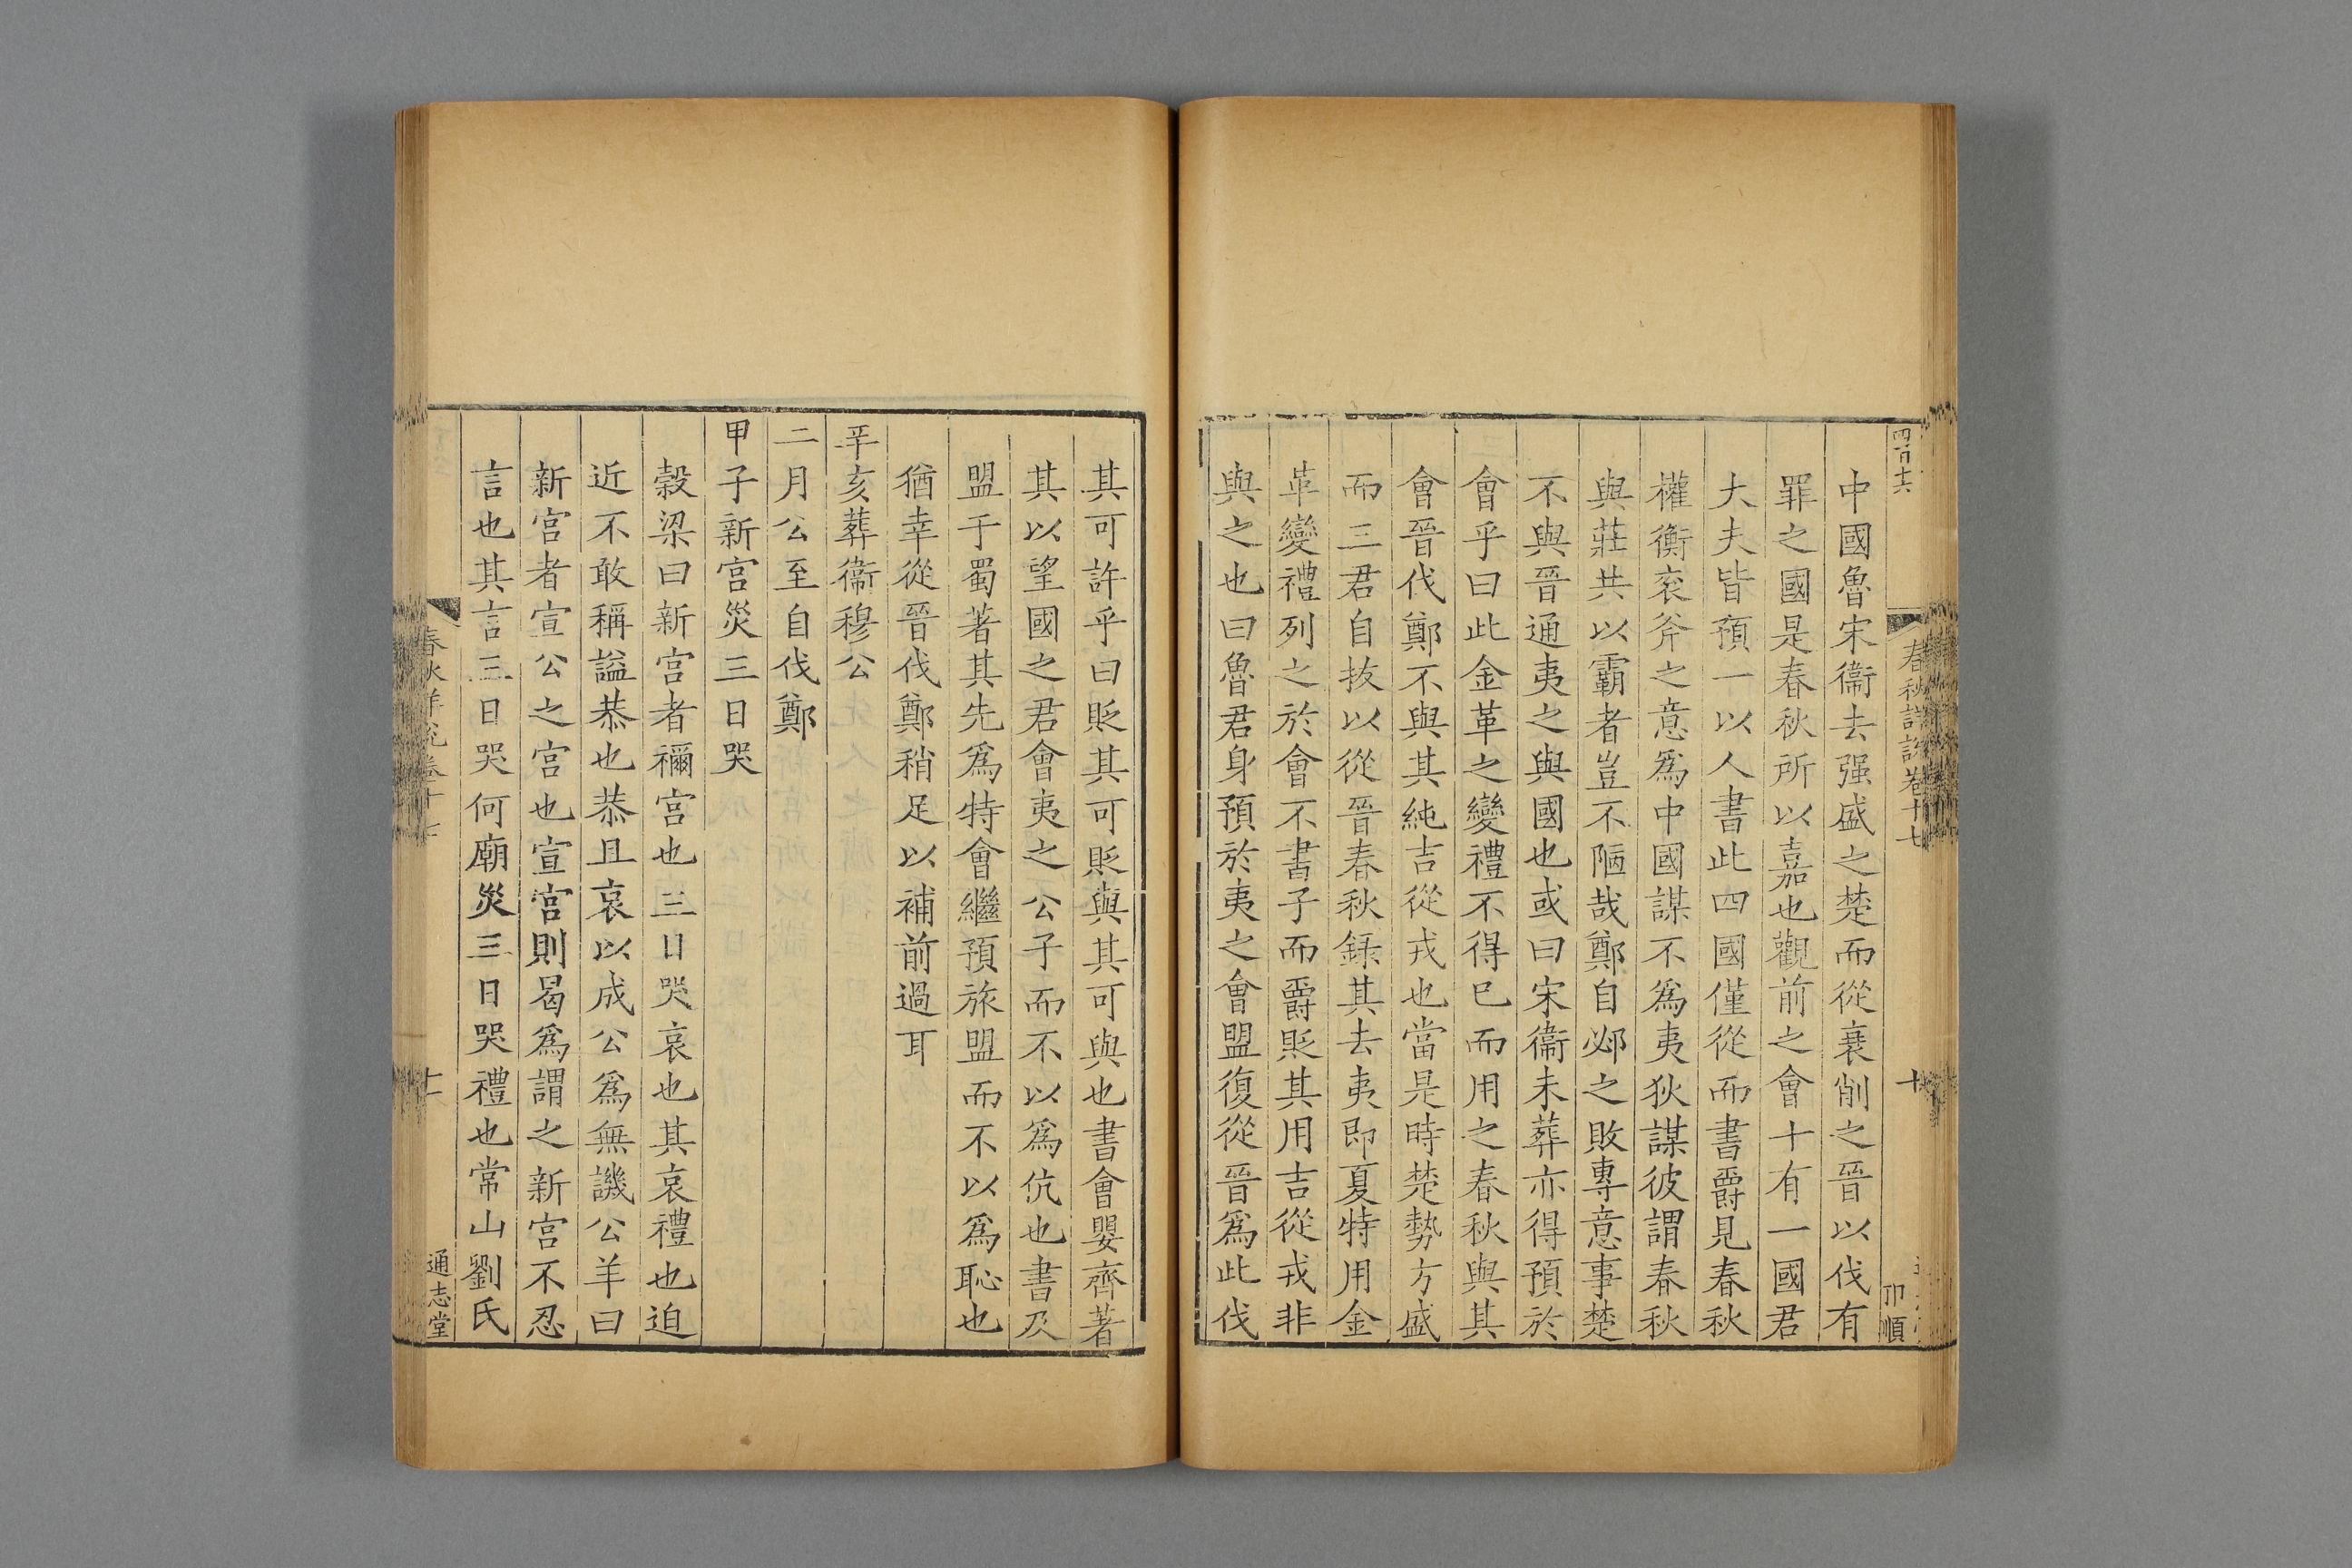 四百十六
春秋詳説卷十七
十
卬順
中國魯宋衞去强盛之楚而從衰削之晉以伐有
罪之國是春秋所以嘉也觀前之會十有一國君
大夫皆預一以人書此四國僅從而書爵見春秋
權衡衮斧之意爲中國謀不爲夷狄謀彼謂春秋
與莊共以霸者豈不陋哉鄭自邲之敗專意事楚
不與晉通夷之與國也或曰宋衞未葬亦得預於
會乎曰此金革之變禮不得已而用之春秋與其
會晉伐鄭不與其純吉從戎也當是時楚勢方盛
而三君自拔以從晉春秋録其去夷即夏特用金
革變禮列之於會不書子而爵貶其用吉從戎非
與之也曰魯君身預於夷之會盟復從晉爲此伐
其可許乎曰貶其可貶與其可與也書會嬰齊著
其以望國之君會夷之公子而不以爲伉也書及
盟于蜀著其先爲特會繼預旅盟而不以爲恥也
猶幸從晉伐鄭稍足以補前過耳
辛亥葬衞穆公
二月公至自伐鄭
甲子新宫災三日哭
穀梁曰新宫者禰宫也三日哭哀也其哀禮也迫
近不敢稱謚恭也恭且哀以成公爲無譏公羊曰
新宫者宣公之宫也宣宫則曷爲謂之新宫不忍
言也其言三日哭何廟災三日哭禮也常山劉氏
春秋詳説卷十七
十一
通志堂